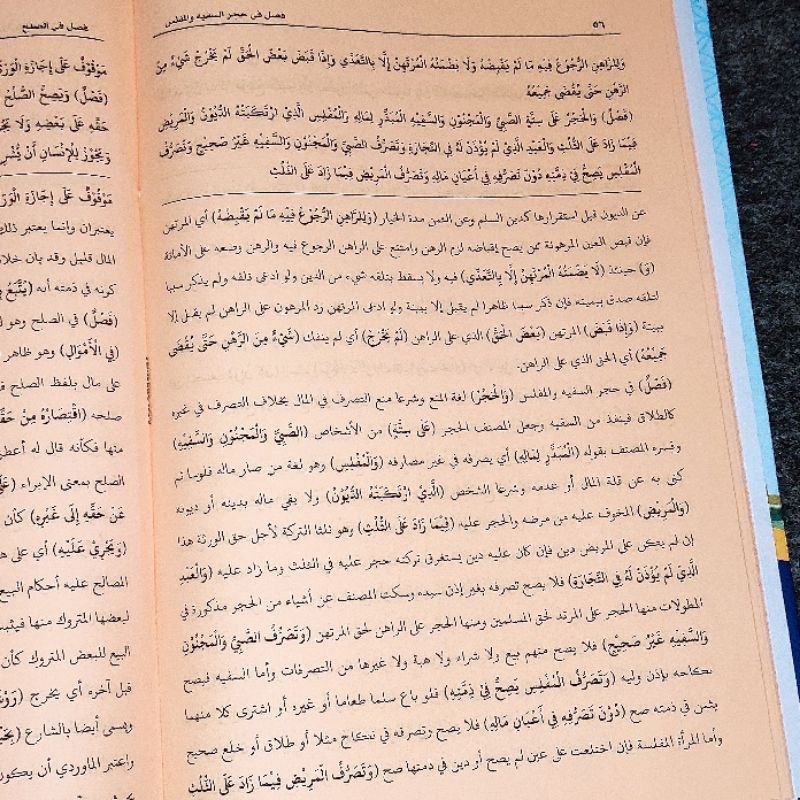 ٥٦
فصل في حجر السفيه والمفلس
وَلِلرَّاهِنِ الرُّجُوْعُ فِيْهِ مَا لَمْ يَقْبِضْهُ وَلَا يَضْمَنُهُ الْمُرْتَهِنُ إِلَّا بِالتَّعَدِّي وَإِذَا قَبَضَ بَعْضَ الْحَقِّ لَمْ يَخْرُجْ شَيْءٌ مِنَ
الرَّهْنِ حَتَّى يُقْضَى جَمِيْعُهُ
(فَصْلٌ) وَالْحَجْرُ عَلَى سِتَّةٍ الصَّبِيُّ وَالْمَجْنُوْنِ وَالسَّفِيْهِ الْمُبَذِّرِ لِمَالِهِ وَالْمُفْلِسِ الَّذِيْ ارْتَكَبَتْهُ الدُّيُوْنُ وَالْمَرِيْضِ
فِيْمَا زَادَ عَلَى الثُّلُثِ وَالْعَبْدِ الَّذِيْ لَمْ يُؤْذَنْ لَهُ فِي التِّجَارَةِ وَتَصَرُّفُ الصَّبِيِّ وَالْمَجْنُوْنِ وَالسَّفِيْهِ غَيْرُ صَحِيْحٍ وَتَصَرُّفُ
الْمُفْلِسِ يَصِحُّ فِيْ ذِمَّتِهِ دُوْنَ تَصَرُّفِهِ فِيْ أَعْيَانِ مَالِهِ وَتَصَرُّفُ الْمَرِيْضِ فِيْمَا زَادَ عَلَى الثُّلُثِ
عن الديون قبل استقرارها كدين السلم وعن الثمن مدة الخيار (وَلِلرَّاهِنِ الرُّجُوْعُ فِيْهِ مَا لَمْ يَقْبِضْهُ) أي المرتهن
فإن قبض العين المرهونة ممن يصح إقباضه لزم الرهن وامتنع على الراهن الرجوع فيه والرهن وضعه على الأمانة
(وَ) حينئذ (لَا يَضْمَنُهُ الْمُرْتَهِنُ إِلَّا بِالتَّعَدِّي) فيه ولا يسقط بتلفه شيء من الدين ولو ادعى تلفه ولم يذكر سببا
لتلفه صدق بيمينه فإن ذكر سببا ظاهرا لم يقبل إلا ببينة ولو ادعى المرتهن رد المرهون على الراهن لم يقبل إلا
ببينة (وَإِذَا قَبَضَ) المرتهن (بَعْضَ الْحَقِّ) الذي على الراهن (لَمْ يَخْرُجْ) أي لم ينفك (شَيْءٌ مِنَ الرَّهْنِ حَتَّى يُقْضَى
جَمِيْعُهُ) أي الحق الذي على الراهن.
(فَصْلٌ) في حجر السفيه والمفلس (وَالْحَجْرُ) لغة المنع وشرعا منع التصرف في المال بخلاف التصرف في غيره
كالطلاق فينفذ من السفيه وجعل المصنف الحجر (عَلَى سِتَّةٍ) من الأشخاص (الصَّبِيُّ وَالْمَجْنُوْنِ وَالسَّفِيْهِ)
وفسره المصنف بقوله (الْمُبَذِّرِ لِمَالِهِ) أي يصرفه في غير مصارفه (وَالْمُفْلِسِ) وهو لغة من صار ماله فلوسا ثم
كنى به عن قلة المال أو عدمه وشرعا الشخص (الَّذِيْ ارْتَكَبَتْهُ الدُّيُوْنُ) ولا يفي ماله بدينه أو ديونه
(وَالْمَرِيْضِ) المخوف عليه من مرضه والحجر عليه (فِيْمَا زَادَ عَلَى الثُّلُثِ) وهو ثلثا التركة لأجل حق الورثة هذا
إن لم يكن على المريض دين فإن كان عليه دين يستغرق تركته حجر عليه في الثلث وما زاد عليه (وَالْعَبْدِ
الَّذِيْ لَمْ يُؤْذَنْ لَهُ فِي التِّجَارَةِ) فلا يصح تصرفه بغير إذن سيده وسكت المصنف عن أشياء من الحجر مذكورة في
المطولات منها الحجر على المرتد لحق المسلمين ومنها الحجر على الراهن لحق المرتهن (وَتَصَرُّفُ الصَّبِيِّ وَالْمَجْنُوْنِ
وَالسَّفِيْهِ غَيْرُ صَحِيْحٍ) فلا يصح منهم بيع ولا شراء ولا هبة ولا غيرها من التصرفات وأما السفيه فيصح
نكاحه بإذن وليه (وَتَصَرُّفُ الْمُفْلِسِ يَصِحُّ فِيْ ذِمَّتِهِ) فلو باع سلما طعاما أو غيره أو اشترى كلا منهما
بثمن في ذمته صح (دُوْنَ تَصَرُّفِهِ فِيْ أَعْيَانِ مَالِهِ) فلا يصح وتصرفه في نكاح مثلا أو طلاق أو خلع صحيح
وأما المرأة المفلسة فإن اختلعت على عين لم يصح أو دين في ذمتها صح (وَتَصَرُّفُ الْمَرِيْضِ فِيْمَا زَادَ عَلَى الثُّلُثِ
فصل في الصلح
مَوْقُوْفٌ عَلَى إِجَازَةِ
(فَصْلٌ) وَيَصِحُّ الصُّلْحُ
حَقِّهِ عَلَى بَعْضِهِ وَلَا
وَيَجُوْزُ لِلْإِنْسَانِ أَنْ
مَوْقُوْفٌ عَلَى إِجَازَةِ
يعتبران وإنما يعتبر
المال قليل وقد بان
كونه في ذمته أنه (يُتْبَعُ
(فَصْلٌ) في الصلح وهو
(فِي الْأَمْوَالِ) وهو ظاهر
على مال بلفظ الصلح
صلحه (اقْتِصَارُهُ مِنْ
منها فكأنه قال له
الصلح بمعنى الإبراء
عَنْ حَقِّهِ إِلَى غَيْرِهِ) كأن
(وَيَجْرِيْ عَلَيْهِ) أي على
المصالح عليه أحكام البيع
لبعضها المتروك منها
البيع للبعض المتروك كأن
قبل آخره أي يخرج
ويسمى أيضا بالشارع
واعتبر الماوردي أن يكون